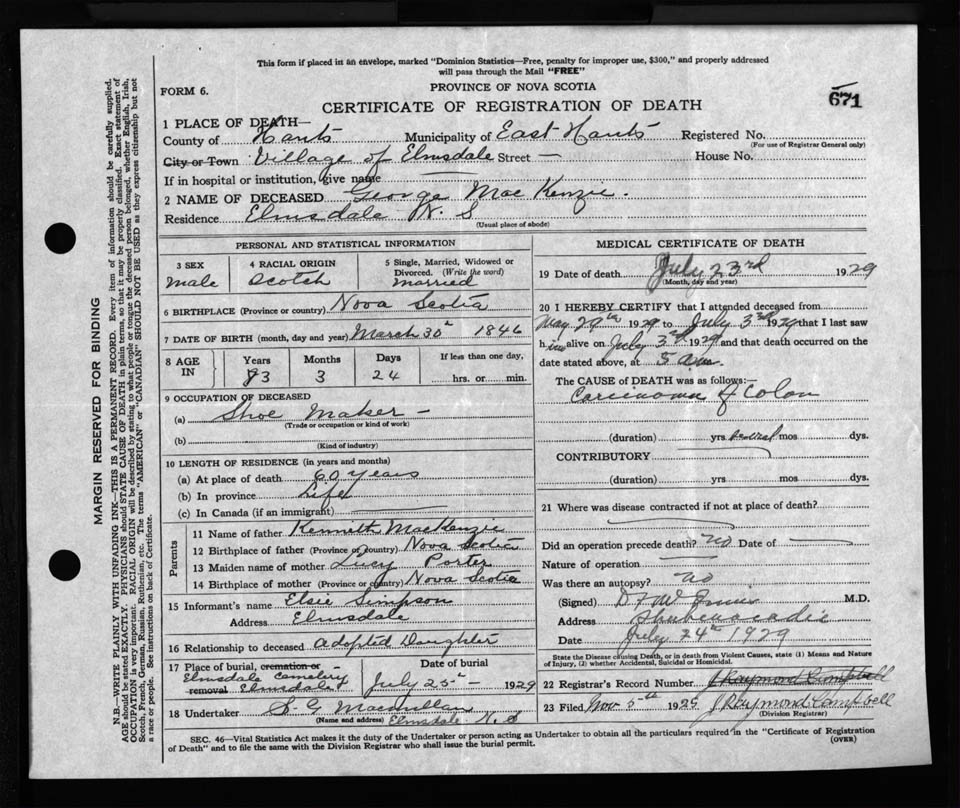 This form if placed in an envelope, marked "Dominion Statistics—Free, penalty for improper use, $300," and properly addressed
will pass through the Mail "FREE"
FORM 6.
PROVINCE OF NOVA SCOTIA
671
CERTIFICATE OF REGISTRATION OF DEATH
1 PLACE OF DEATH—
County of Hants Municipality of East Hants Registered No.
(For use of Registrar General only)
City or Town Village of Elmsdale Street — House No.
If in hospital or institution, give name —
2 NAME OF DECEASED George MacKenzie.
Residence Elmsdale N. S
(Usual place of abode)
PERSONAL AND STATISTICAL INFORMATION
3 SEX
male
4 RACIAL ORIGIN
Scotch
5 Single, Married, Widowed or
Divorced. (Write the word)
married
6 BIRTHPLACE (Province or country) Nova Scotia
7 DATE OF BIRTH (month, day and year) March 30 1846
8 AGE
IN
Years Months Days If less than one day,
83 3 24 hrs. or min.
9 OCCUPATION OF DECEASED
(a) Shoe Maker —
(Trade or occupation or kind of work)
(b)
(Kind of industry)
10 LENGTH OF RESIDENCE (in years and months)
(a) At place of death 60 years
(b) In province Life
(c) In Canada (if an immigrant)
Parents
11 Name of father Kenneth MacKenzie
12 Birthplace of father (Province or country) Nova Scotia
13 Maiden name of mother Lucy Porter
14 Birthplace of mother (Province or country) Nova Scotia
15 Informant's name Elsie Simpson
Address Elmsdale
16 Relationship to deceased adopted Daughter
17 Place of burial, cremation or Date of burial
Elmsdale Cemetery
removal Elmsdale July 25 — 1929
18 Undertaker S. G MacMullan
(Name and address) Elmsdale N. S
MEDICAL CERTIFICATE OF DEATH
19 Date of death July 23rd 1929
(Month, day and year)
20 I HEREBY CERTIFY that I attended deceased from
May 29th 1929 to July 3rd 1929 that I last saw
him alive on July 3rd 1929 and that death occurred on the
date stated above, at 5 am.
The CAUSE OF DEATH was as follows:—
Carcinoma of Colon
(duration) yrs several mos dys.
CONTRIBUTORY
(duration) yrs mos dys.
21 Where was disease contracted if not at place of death?
Did an operation precede death? no Date of —
Nature of operation —
Was there an autopsy? no
(Signed) D F M.D.
Address Shubenacadie
Date July 24th 1929
State the Disease causing Death, or in death from Violent Causes, state (1) Means and Nature
of Injury, (2) whether Accidental, Suicidal or Homicidal.
22 Registrar's Record Number J Raymond Campbell
23 Filed Nov 5th 1929 J Raymond Campbell
(Division Registrar)
SEC. 46—Vital Statistics Act makes it the duty of the Undertaker or person acting as Undertaker to obtain all the particulars required in the "Certificate of Registration
of Death" and to file the same with the Division Registrar who shall issue the burial permit.
(OVER)
MARGIN RESERVED FOR BINDING
N.B.—WRITE PLAINLY WITH UNFADING INK—THIS IS A PERMANENT RECORD. Every item of information should be carefully supplied.
AGE should be stated EXACTLY. PHYSICIANS should STATE CAUSE OF DEATH in plain terms, so that it may be properly classified. Exact statement of
OCCUPATION is very important. RACIAL ORIGIN will be described by stating to what people or tongue the deceased person belonged, whether English, Irish,
Scotch, French, German, Russian, Ruthenian, etc. The terms "AMERICAN" or "CANADIAN" SHOULD NOT BE USED as they express citizenship but not
a race or people. See instructions on back of Certificate.